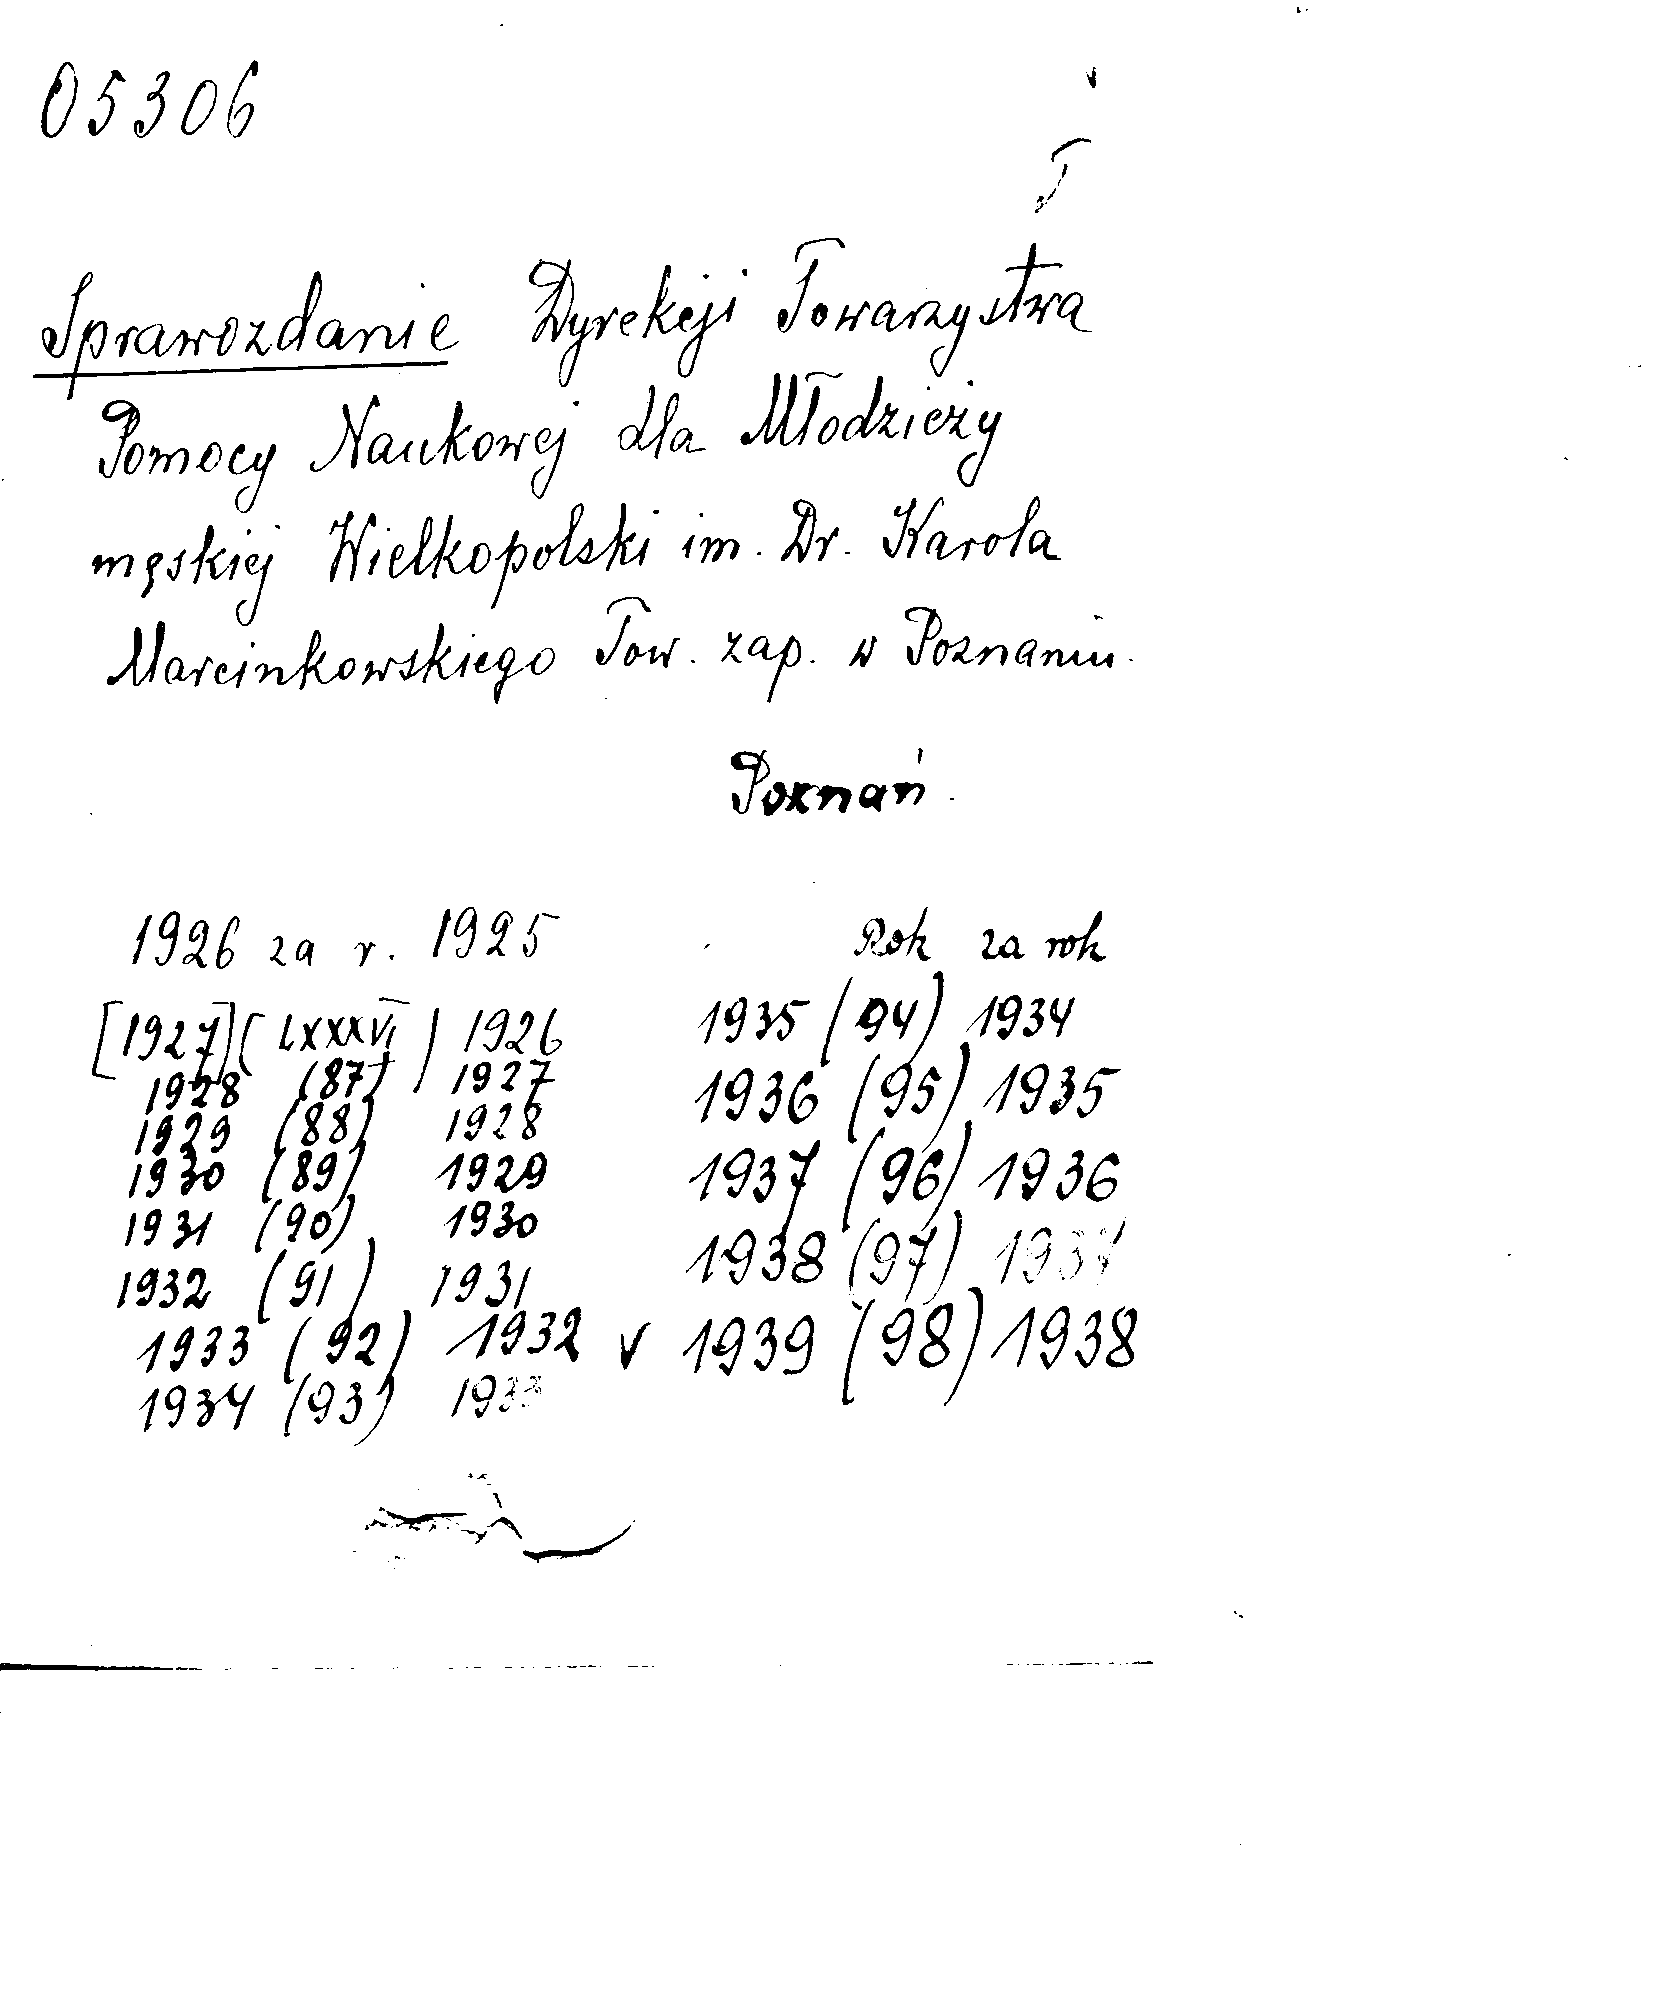 05306
T
Sprawozdanie Dyrekcji Towarzystwa
Pomocy Naukowej dla Młodzieży
męskiej Wielkopolski im. Dr. Karola
Marcinkowskiego Tow. zap. w Poznaniu.
Poznań.
1926 za r. 1925
[1927] (LXXXVI) 1926
1928 (87) 1927
1929 (88) 1928
1930 (89) 1929
1931 (90) 1930
1932 (91) 1931
1933 (92) 1932
1934 (93) 1933
Rok za rok
1935 (94) 1934
1936 (95) 1935
1937 (96) 1936
1938 (97) 1937
v 1939 (98) 1938